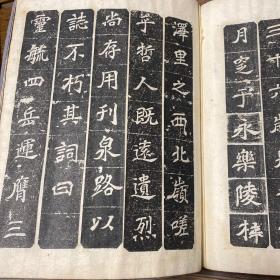 三十六
月窆于永樂陵梓
澤里之西北嶺嗟
乎哲人既遠遺烈
尚存用刊泉路以
誌不朽其詞曰
靈毓四岳運膺三